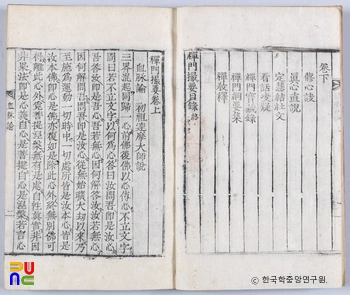 卷下
修心訣
眞心直說
定慧結社文
看話決疑
禪門寶藏錄
禪門綱要集
禪敎釋
禪門撮要目錄終
禪門撮要卷上
血脉論 初祖達摩大師說
三界混起同歸一心前佛後佛以心傳心不立文字
問曰若不立文字以何爲心答曰汝問吾即是汝心
吾答汝即是吾心吾若無心因何解答汝汝若無心
因何解問吾問吾即是汝心從無始曠大劫以來乃
至施爲運動一切時中一切處所皆是汝本心皆是
汝本佛即心是佛亦復如是除此心外終無別佛可
得離此心外覓菩提涅槃無有是處自性眞實非因
非果法即是心義自心是菩提自心是涅槃若言心
血脉論
PUNC
©한국학중앙연구원.